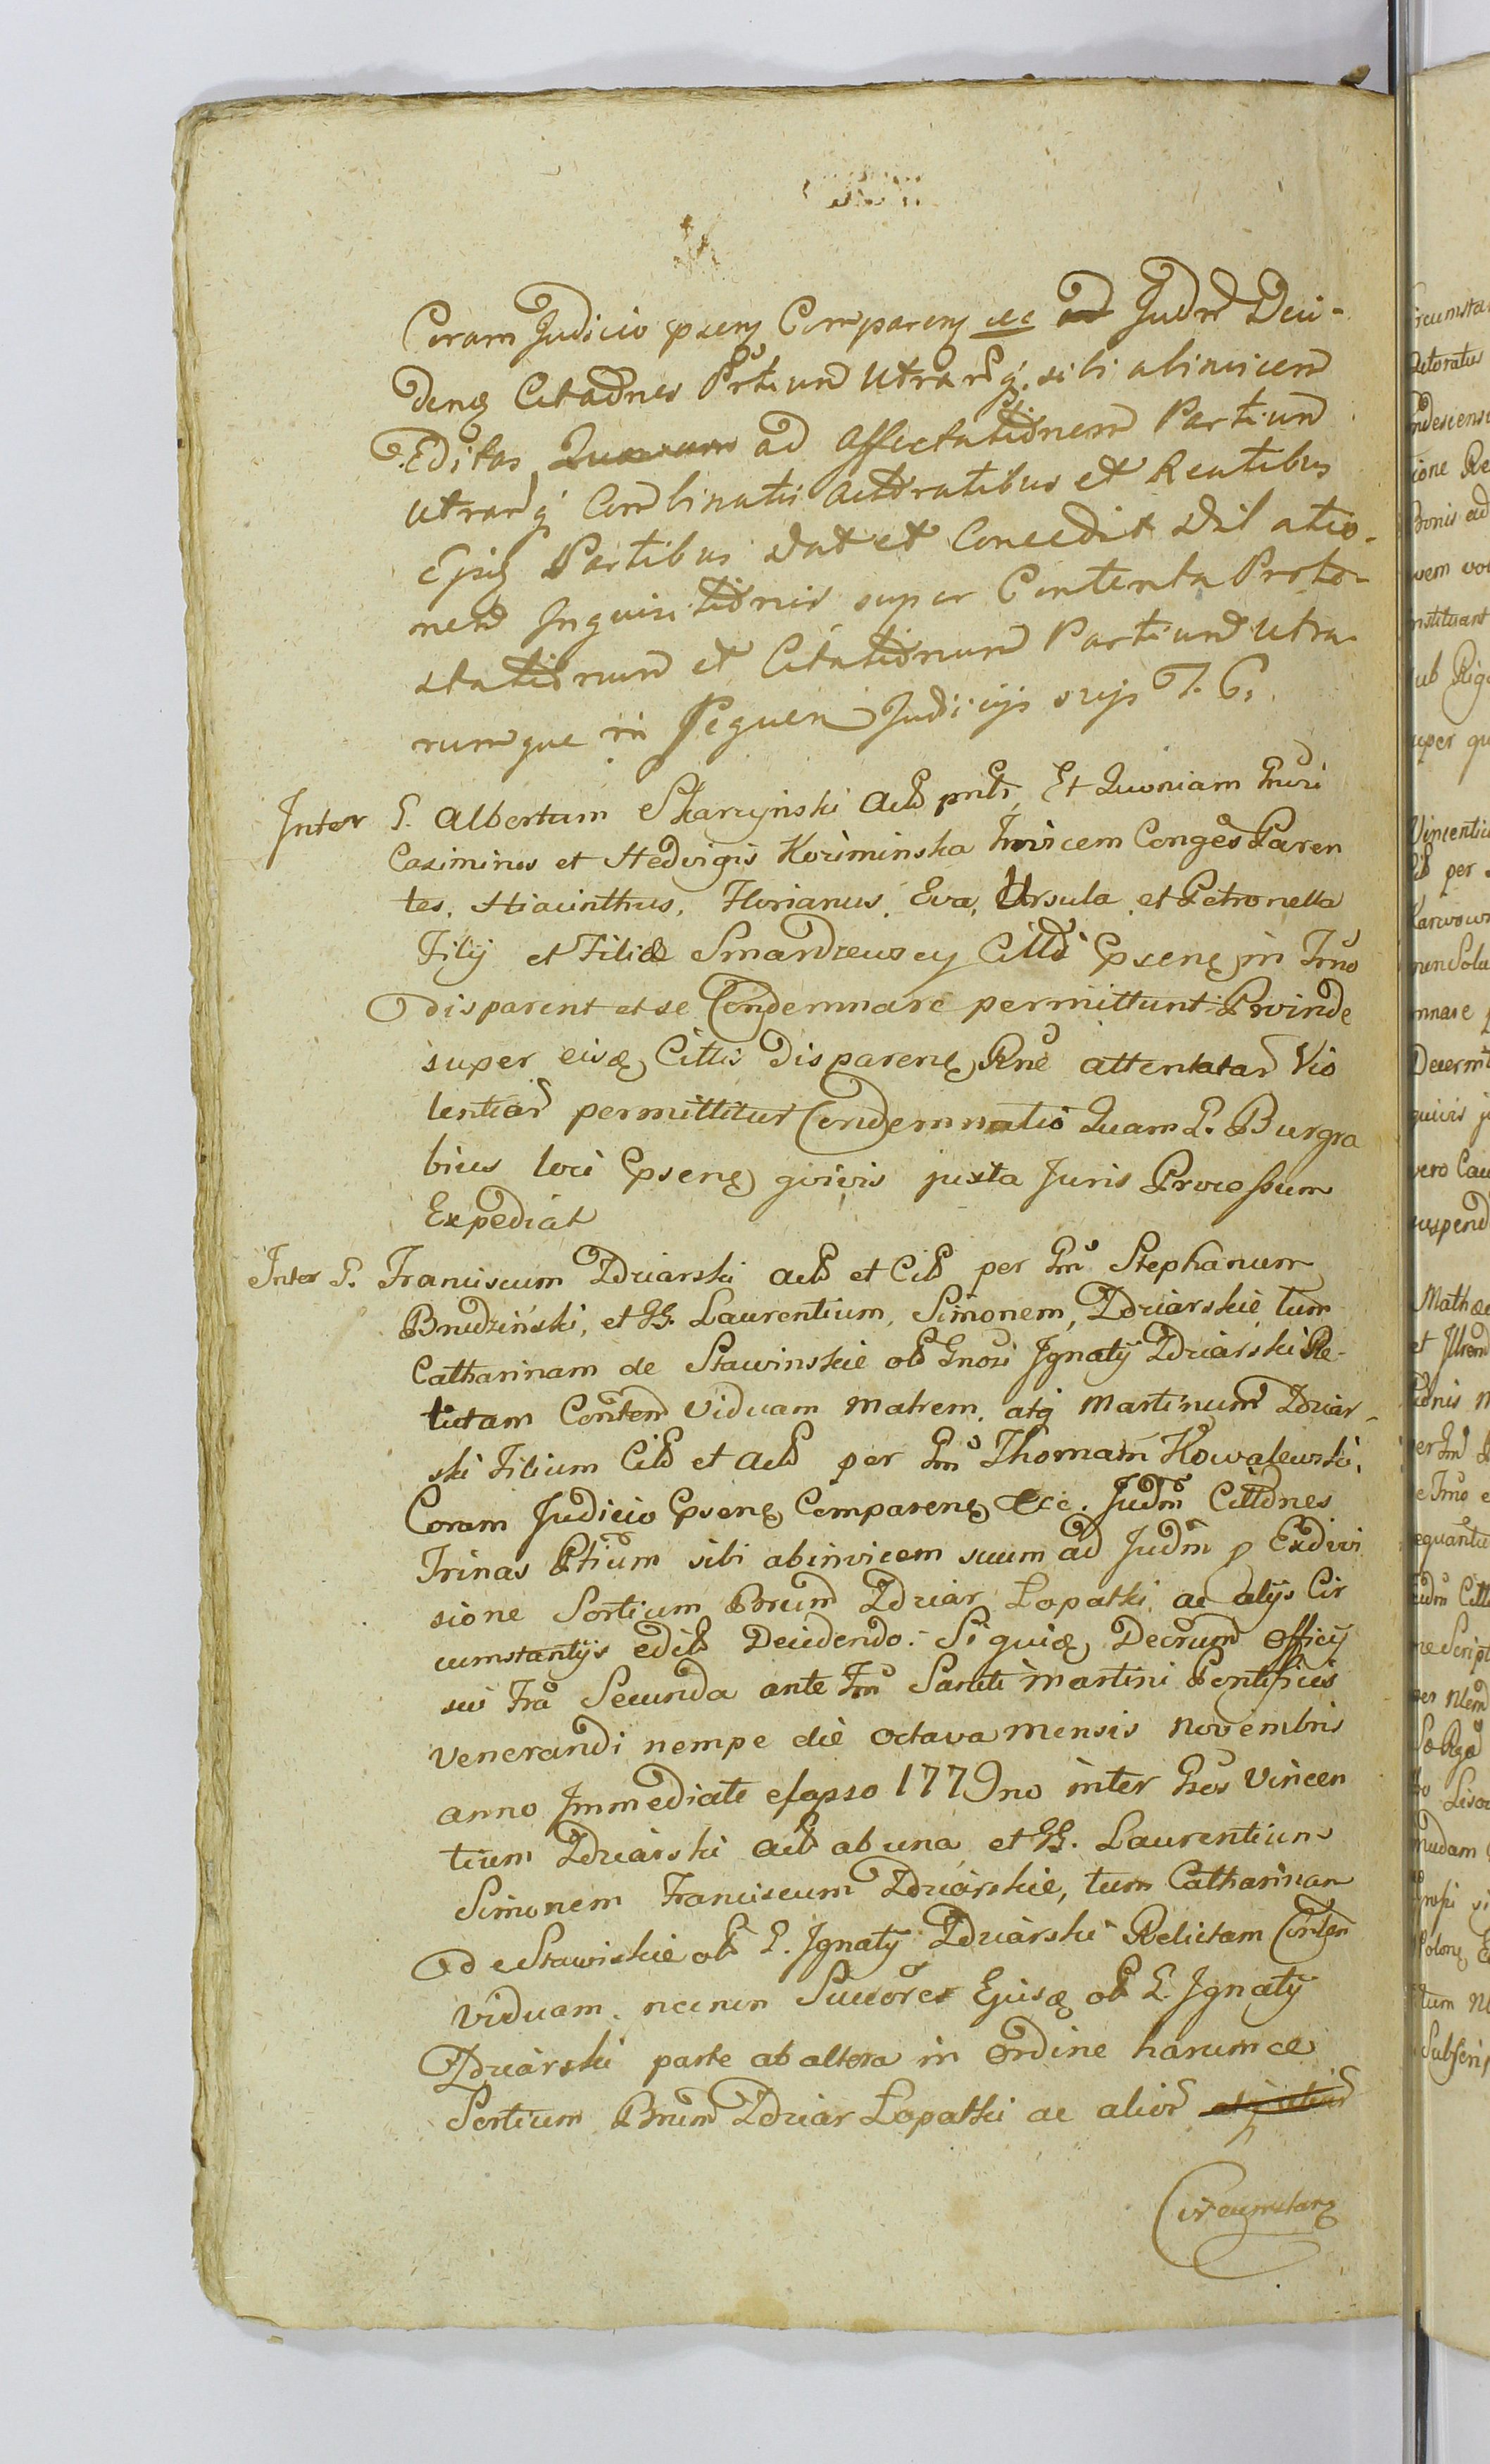 Coram Judicio pseng Compareng &c ad Judm Deci-
deng Citaōnes Prtium Utrarq; sibi abinvicem
Editas Quarum ad affectationem Partium
Utrarq; Combinatis actoratibus et Reatibus
Ejsq Partibus dat et Concedit Dilatio-
nem Inquisitionis super Contenta Prote-
stationum et Citationum Partium Utra-
rumque in sequen Judicijs suis T. G.
Inter G. Albertum Skarzynski Act pnts, Et Quoniam Gnrsi
Casimirus et Hedvigis Koziminska Invicem Conges Paren
tes, Hiacinthus, Florianus, Eva, Ursula et Petronella
Filij et Filiæ Smardzewscy Citti Pseng in Trno
disparent et se Condemnare permittunt Proinde
super eisq Cittis dispareng Rne attentatar Vio
lentiar permittitur Condemnatio Quam G. Burgra
bius loci Pseng quivis juxta Juris Processum
Expediat
Inter G. Franciscum Zdziarski act et Cit per Gm Stephanum
Brudziński, et GG. Laurentium, Simonem, Zdziarskie, tum
Catharinam de Stawinskie olt Gnosi Ignatij Zdziarski Re-
lictam Contem Viduam Matrem, atq Martinum Zdziar-
ski Filium Cit et act per Gm Thomam Kowalewski,
Coram Judicio Pseng Compareng &cc. Judm Cittōnes
Trinas Ptium sibi abinvicem suum ad Judm p Exdivi
sione Sortium Bnrum Zdziar Łopatki ac alijs Cir
cumstantijs edit Decidendo. Siquiq Decrum Officij
sui Fra Secunda ante Fm Sancti Martini Pontificis
Venerandi nempe die octava Mensis Novembris
anno Immediate elapso 1779no inter Gsos Vincen
tium Zdziarski act ab una et GG. Laurentium
Simonem Franciscum Zdziarskie, tum Catharinam
de Stawiskie olt G. Ignatij Zdziarski Relictam Contem
Viduam, necnon Succores Ejusq olt G. Ignatij
Zdziarski parte ab altera in Ordine harumce
Sortium Bnrum Zdziar Łopatki ac alior atq alior
Circumstang